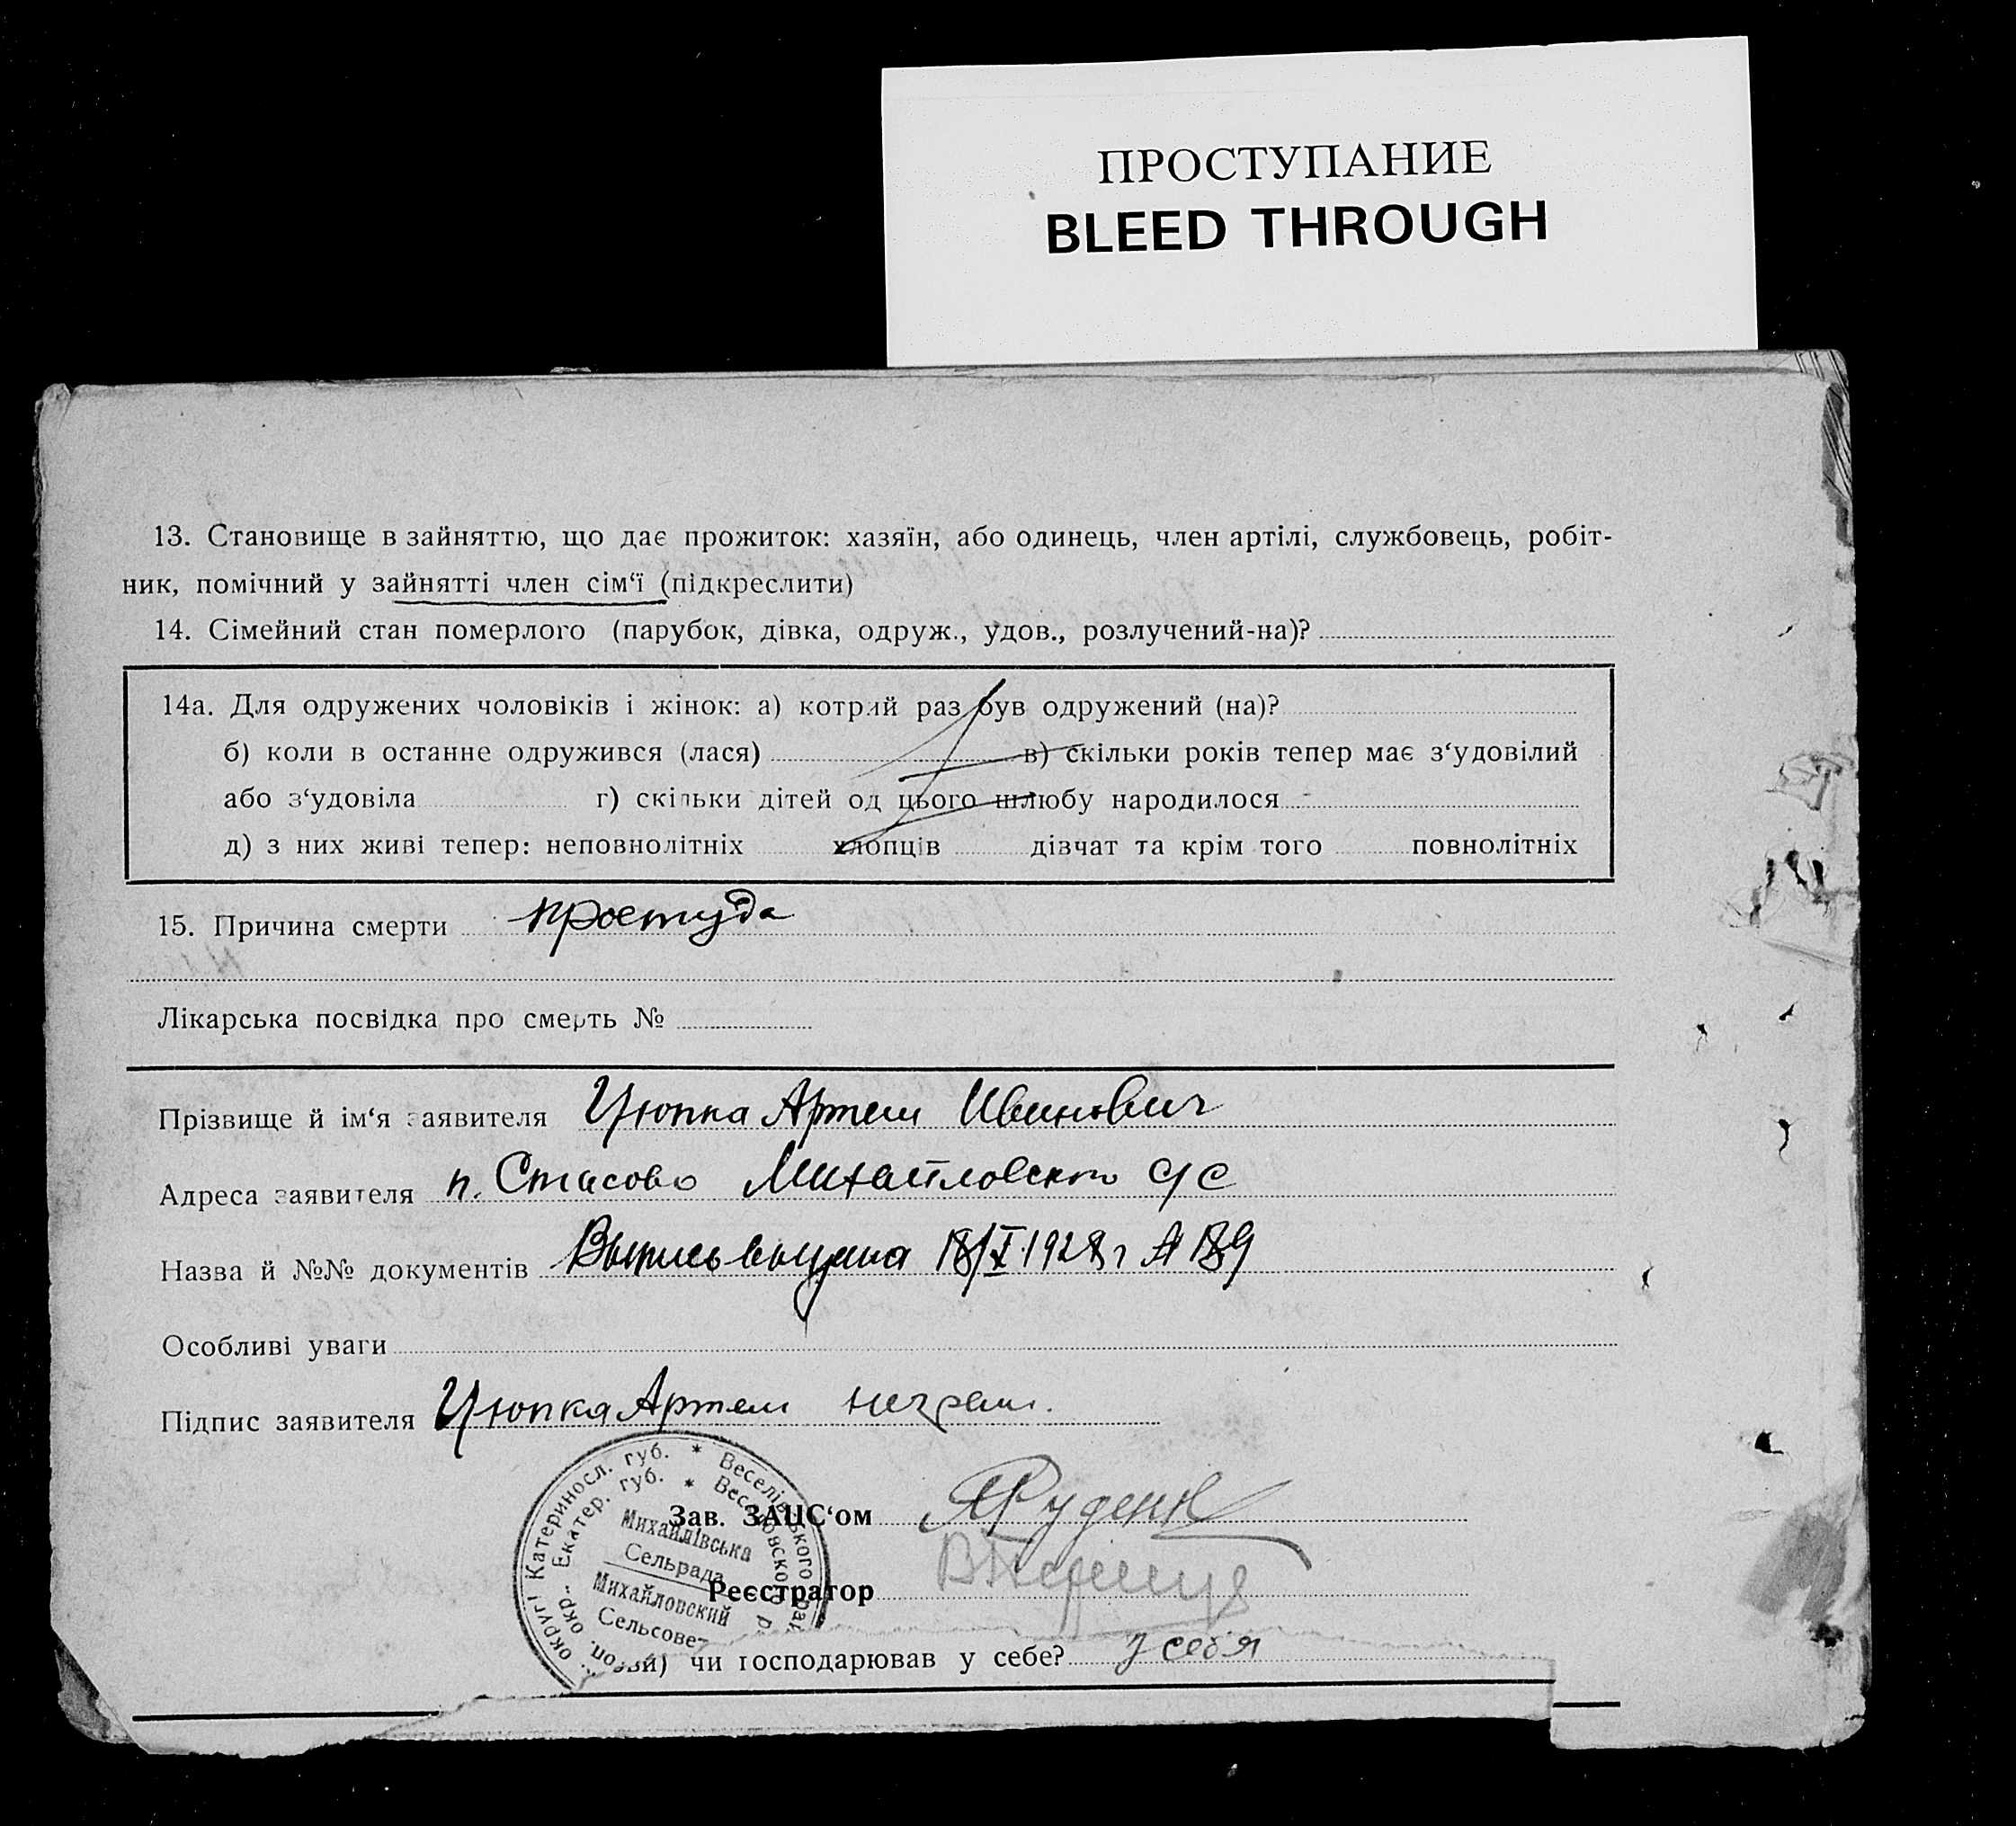 ПРОСТУПАНИЕ
BLEED THROUGH
13. Становище в зайняттю, що дає прожиток: хазяїн, або одинець, член артілі, службовець, робіт-
ник, помічний у зайнятті член сім‘ї (підкреслити)
14. Сімейний стан померлого (парубок, дівка, одруж., удов., розлучений-на)?
14а. Для одружених чоловіків і жінок: а) котрий раз був одружений (на)?
б) коли в останнe одружився (лася) в) скільки років тепер має з‘удовілий
або з‘удовіла г) скільки дітей од цього шлюбу народилося
д) з них живі тепер: неповнолітніх хлопців дівчат та крім того повнолітніх
15. Причина смерти простуда
Лікарська посвідка про смерть №
Прізвище й ім‘я заявителя Цюпка Артем Иванович
Адреса заявителя п. Стасово Михайловского с/с
Назва й №№ документів Выпись выдана 18/X 1928 г № 189
Особливі уваги
Підпис заявителя Цюпка Артем неграм.
округі Катеринослав. губ. * Веселівського рай
окр. Екатер. губ. * Веселовского р
Михайлівська
Сельрада
Михайловский
Сельсовет
Зав. ЗАЦС‘ом Руденк
Реєстратор
чи господарював у себе? у себя